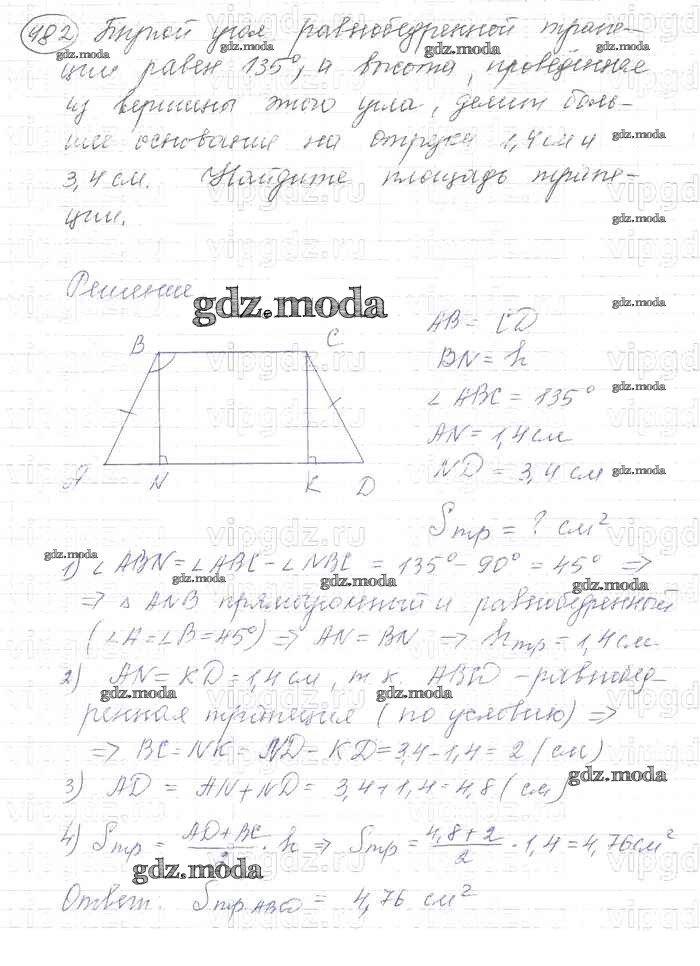 482 Тупой угол равнобедренной трапе-
ции равен 135°, а высота, проведённая
из вершины этого угла, делит боль-
шее основание на отрезки 1,4 см и
3,4 см. Найдите площадь трапе-
ции.
Решение
gdz.moda
B C
A N K D
AB = CD
BN = h
∠ABC = 135°
AN = 1,4 см
ND = 3,4 см
Sтр = ? см²
1) ∠ABN = ∠ABC - ∠NBC = 135° - 90° = 45° ⇒
⇒ △ANB прямоугольный и равнобедренный
(∠A = ∠B = 45°) ⇒ AN = BN ⇒ hтр = 1,4 см
2) AN = KD = 1,4 см, т.к. ABCD - равнобед-
ренная трапеция (по условию) ⇒
⇒ BC = NK = ND - KD = 3,4 - 1,4 = 2 (см)
3) AD = AN + ND = 3,4 + 1,4 = 4,8 (см)
4) Sтр = (AD + BC)/2 · h ⇒ Sтр = (4,8 + 2)/2 · 1,4 = 4,76 см²
Ответ: Sтр.ABCD = 4,76 см²